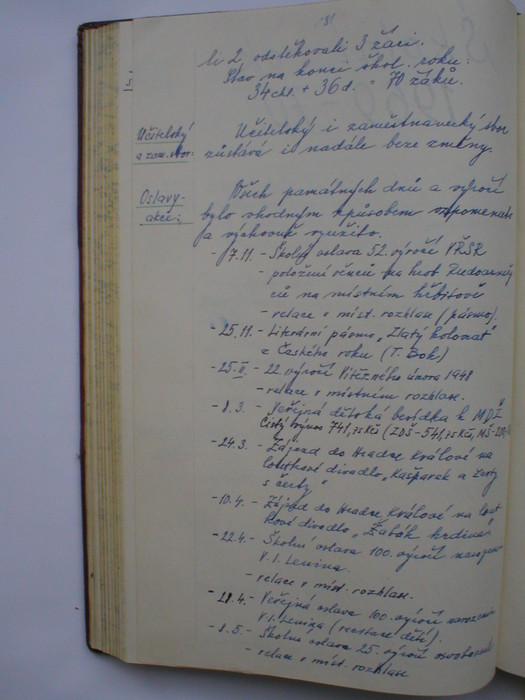 131
li 2 odstěhovali 3 žáci.
Stav na konci škol. roku:
34 chl. + 36 d. = 70 žáků.
Učitelský
a zam. sbor.
Učitelský i zaměstnavecký sbor
zůstává i nadále beze změny.
Oslavy-
akce:
Všech památných dnů a výročí
bylo vhodným způsobem vzpomenuto
a výchovně využito.
7.11. - Školní oslava 52. výročí VŘSR
- položení věnců na hrob Rudoarměj
ců na místním hřbitově
- relace v míst. rozhlase (pásmo).
- 25.11. - Literární pásmo "Zlatý kolovrat"
z Českého roku (T. Bok)
- 25.II. - 22. výročí Vítězného února 1948
- relace v místním rozhlase.
- 8.3. - Veřejná dětská besídka k MDŽ
Čistý výnos 741,75 Kčs (ZDŠ - 541,75 Kčs, MŠ -
- 24.3. - Zájezd do Hradce Králové na
loutkové divadlo "Kašpárek a čerty
s čerty"
- 10.4. - Zájezd do Hradce Králové na lout
kové divadlo "Žabák hrdina"
- 22.4. - Školní oslava 100. výročí narození
V. I. Lenina.
- relace v míst. rozhlase.
- 21.4. - Veřejná oslava 100. výročí narození
V. I. Lenina (recitace dětí).
- 8.5. - Školní oslava 25. výročí osvobození
- relace v míst. rozhlase